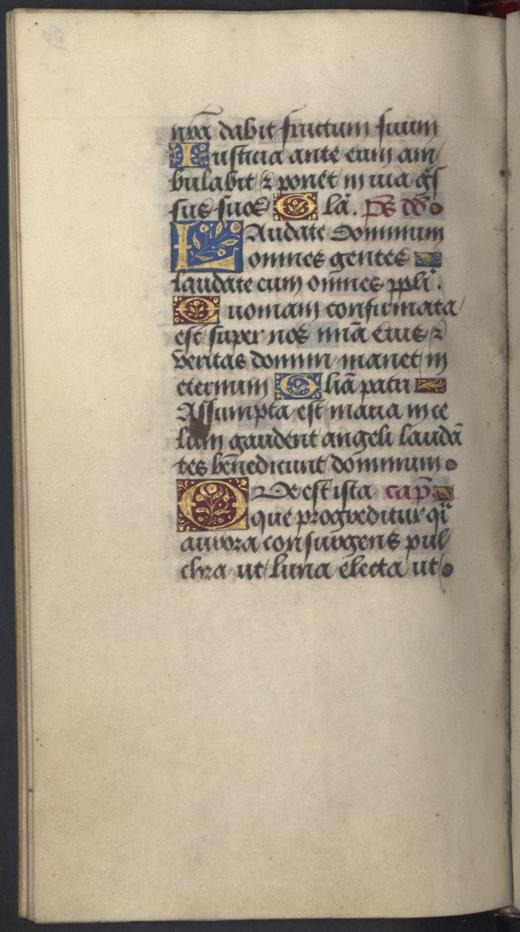 nrā dabit fructum suum
Iusticia ante eum am
bulabit ⁊ ponet in uia g̃s
sus suos Glā. ps̄ dd̄
Laudate Dominum
omnes gentes
laudate eum omnes ppli.
Quoniam confirmata
est super nos mīa eius ⁊
veritas domini manet in
eternum Gliā patri
Assumpta est maria in ce
lum gaudent angeli laudā
tes benedicunt dominum
Que est ista cap̄
que progreditur qi
aurora consurgens pul
chra ut luna electa ut